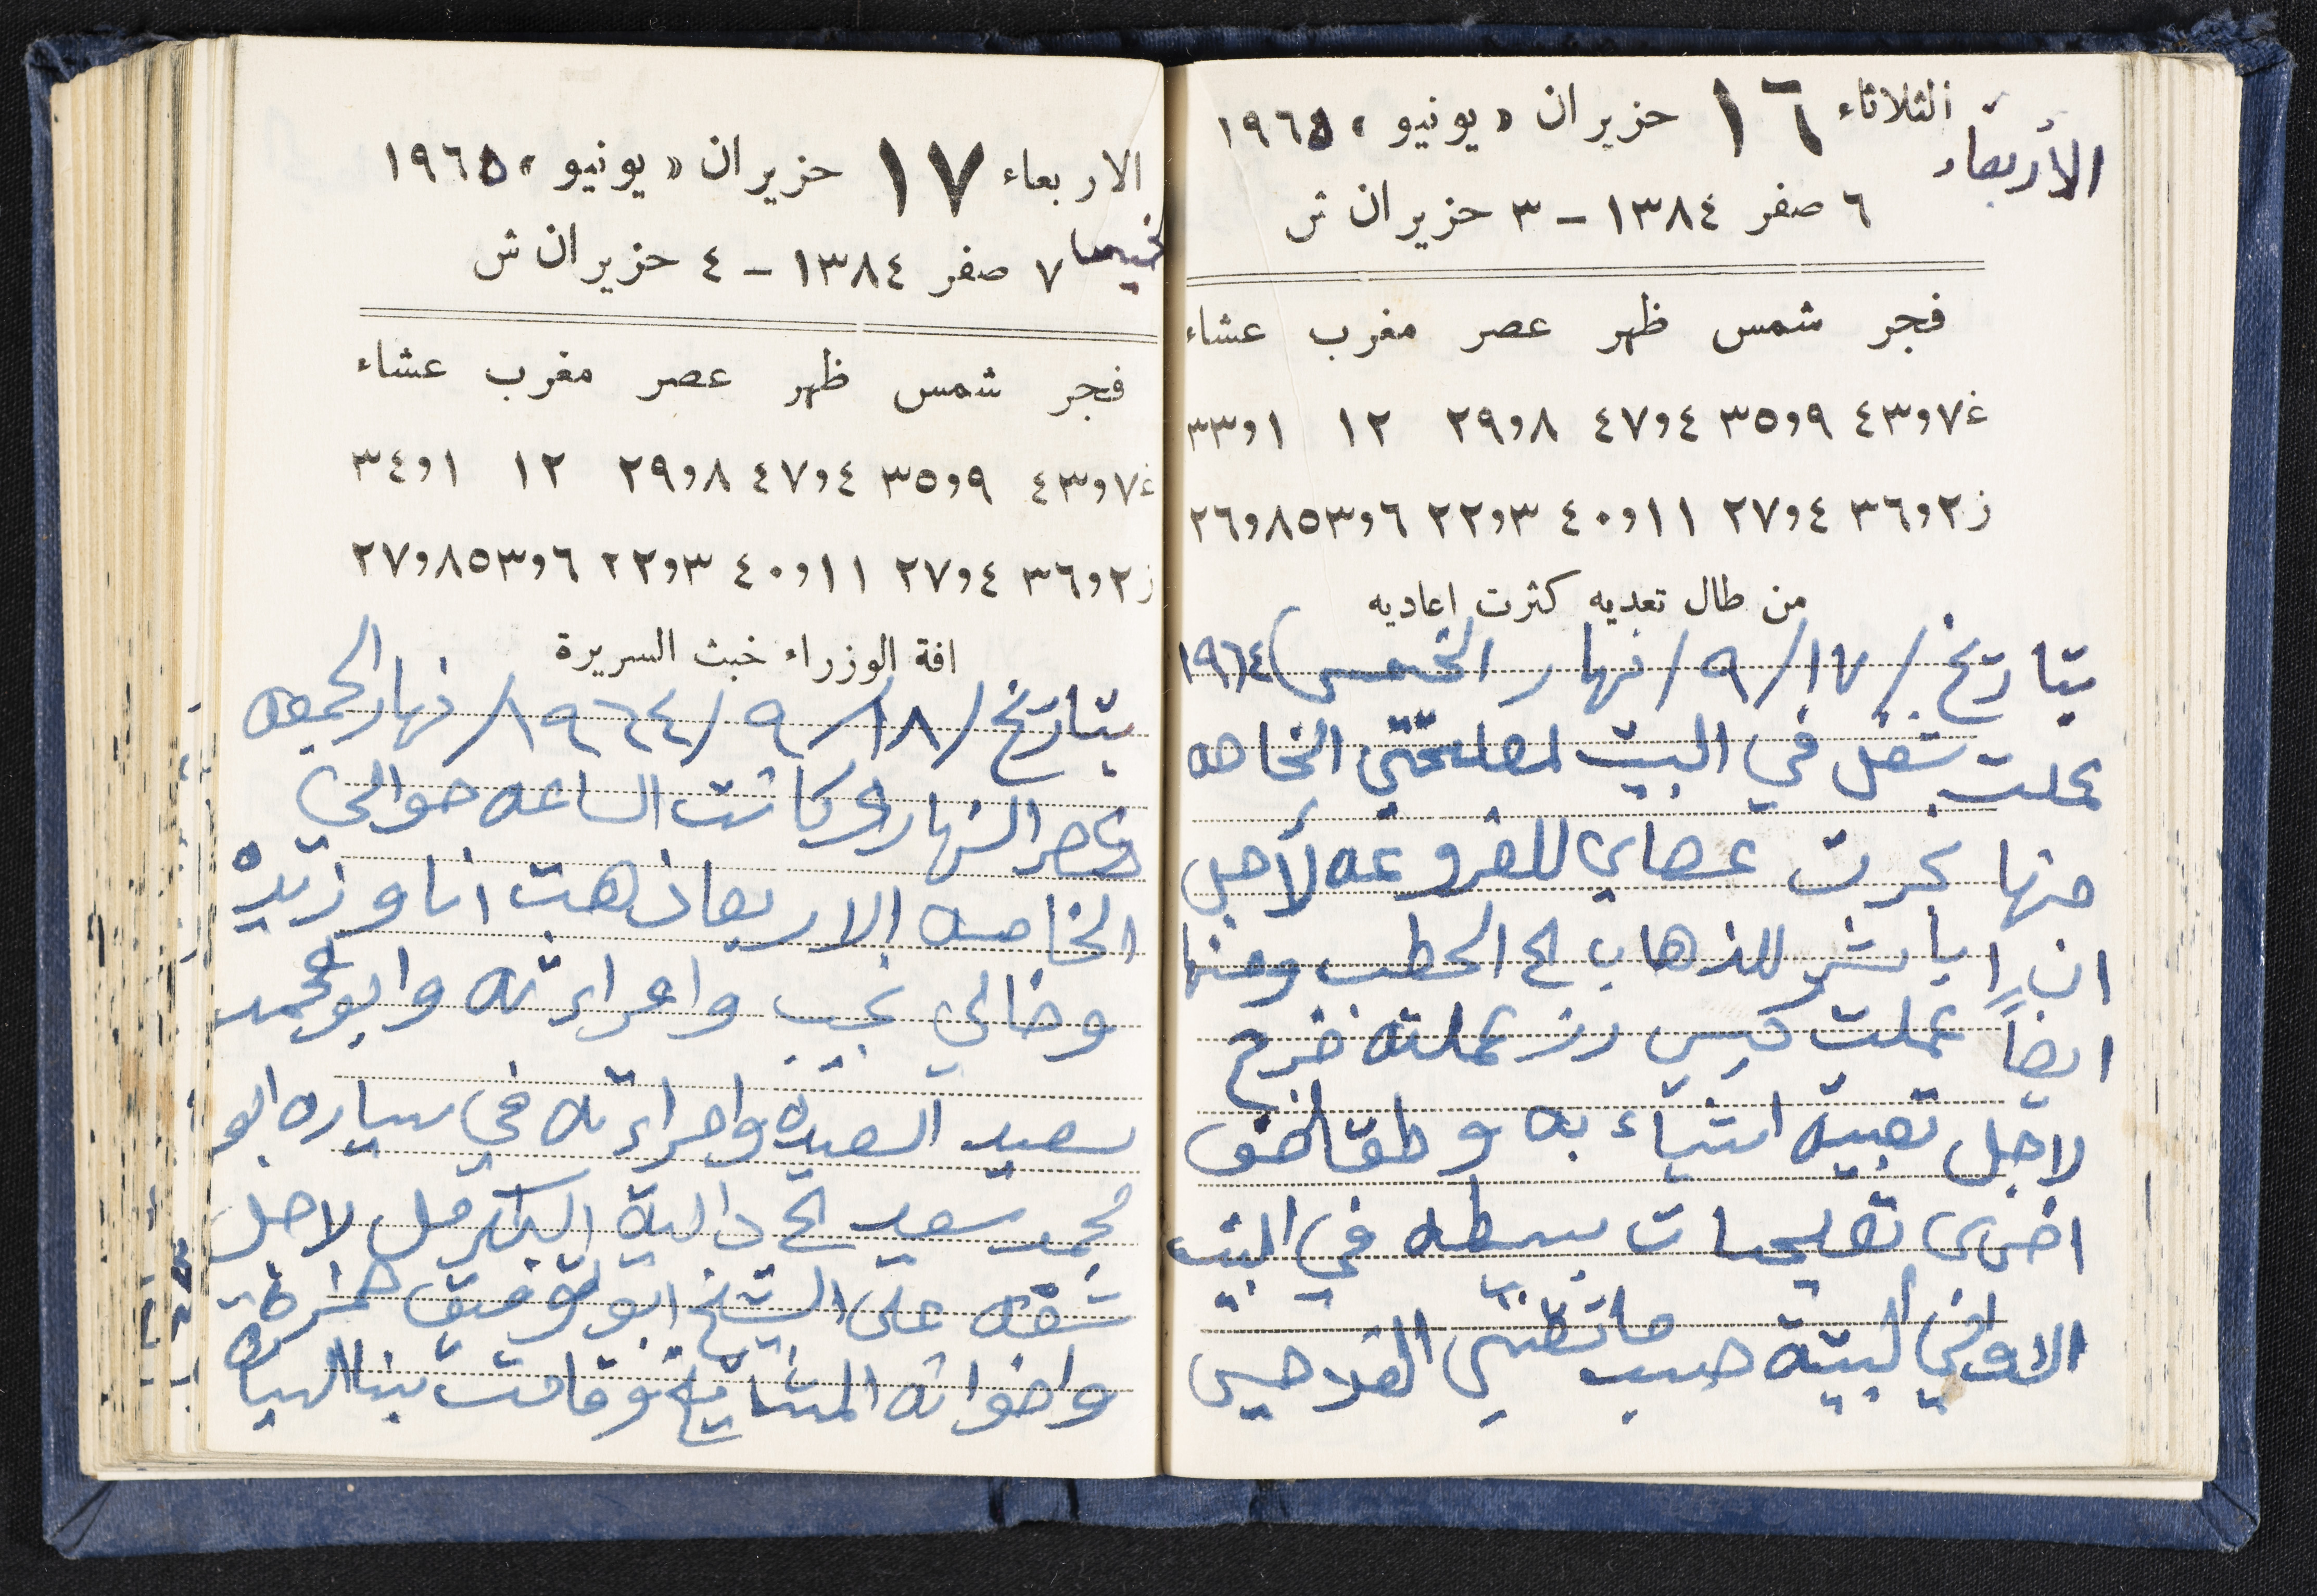 الثلاثاء ١٦ حزيران «يونيو» ١٩٦٥
الأربعاء
٦ صفر ١٣٨٤ - ٣ حزيران ش
فجر شمس ظهر عصر مغرب عشاء
غ ٤٣٫٧ ٣٥٫٩ ٤٧٫٤ ٢٩٫٨ ١٢ ٣٣٫١
ز ٣٦٫٢ ٢٧٫٤ ٤٠٫١١ ٢٢٫٣ ٥٣٫٦ ٢٦٫٨
من طال تعديه كثرت اعاديه
بتاريخ /١٧/ ٩/ نهار الخميس ١٩٦٤
عملت شغل في البيت لمصلحتي الخاصه
منها نجرت عصاي للفروعه لأجل
ان اباشر للذهاب الى الحطب ومنها
ايضاً عملت كيس رز عملته خرج
لاجل تعبية اشياء به و
اخرى تصليحات بسيطه في البيت
البيتة حسب الفلاحين
الاربعاء ١٧ حزيران «يونيو» ١٩٦٥
خميس
٧ صفر ١٣٨٤ - ٤ حزيران ش
فجر شمس ظهر عصر مغرب عشاء
غ ٤٣٫٧ ٣٥٫٩ ٤٧٫٤ ٢٩٫٨ ١٢ ٣٤٫١
ز ٣٦٫٢ ٢٧٫٤ ٤٠٫١١ ٢٢٫٣ ٥٣٫٦ ٢٧٫٨
افة الوزراء خبث السريرة
بتاريخ /١٨/ ٩/ ١٩٦٤/ نهار الجمعه
عصر النهار وكانت الساعه حوالي
الخامسه الا ربعا ذهبت انا و زيده
وخالي نجيب وامراءته وابو محمد
سعيد السعيده وامراءته في سياره ابو
محمد سعيد الى دالية الكرمل لاجل
شقه على الشيخ ابو توفيق حمزة
واخوانه المشايخ وقامت بنا السياره